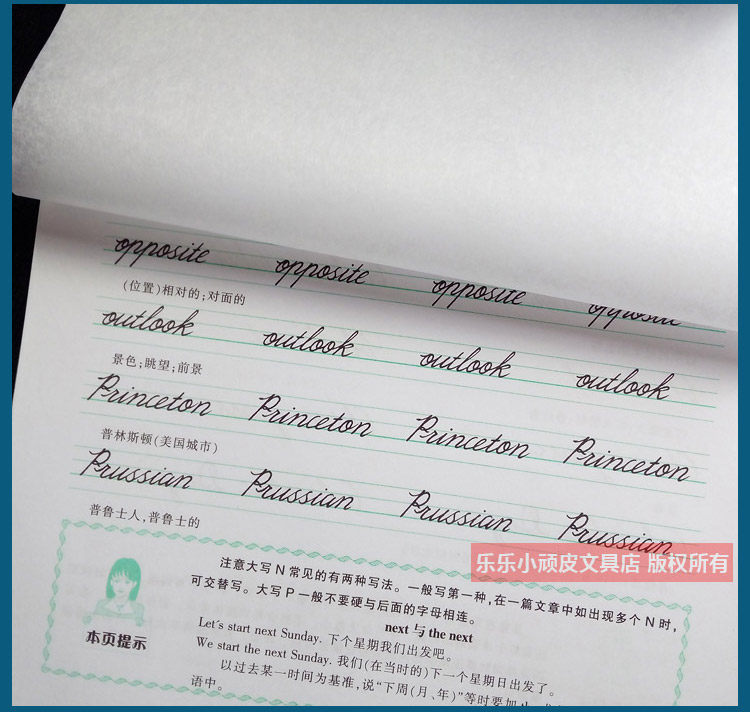 opposite opposite opposite opposite
(位置)相对的;对面的
outlook outlook outlook outlook
景色;眺望;前景
Princeton Princeton Princeton Princeton
普林斯顿(美国城市)
Prussian Prussian Prussian Prussian
普鲁士人,普鲁士的
乐乐小顽皮文具店 版权所有
注意大写 N 常见的有两种写法。一般写第一种,在一篇文章中如出现多个 N 时,
可交替写。大写 P 一般不要硬与后面的字母相连。
本页提示
next 与 the next
Let's start next Sunday. 下个星期我们出发吧。
We start the next Sunday. 我们(在当时的)下一个星期日出发了。
以过去某一时间为基准,说“下周(月、年)”等时要加
语中。